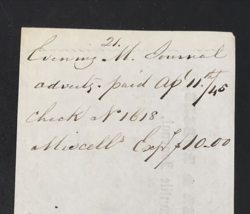 21.
Evening M. Journal
adverts. paid Ap 11th/45
Check No 1618
Miscells Exps $10.00